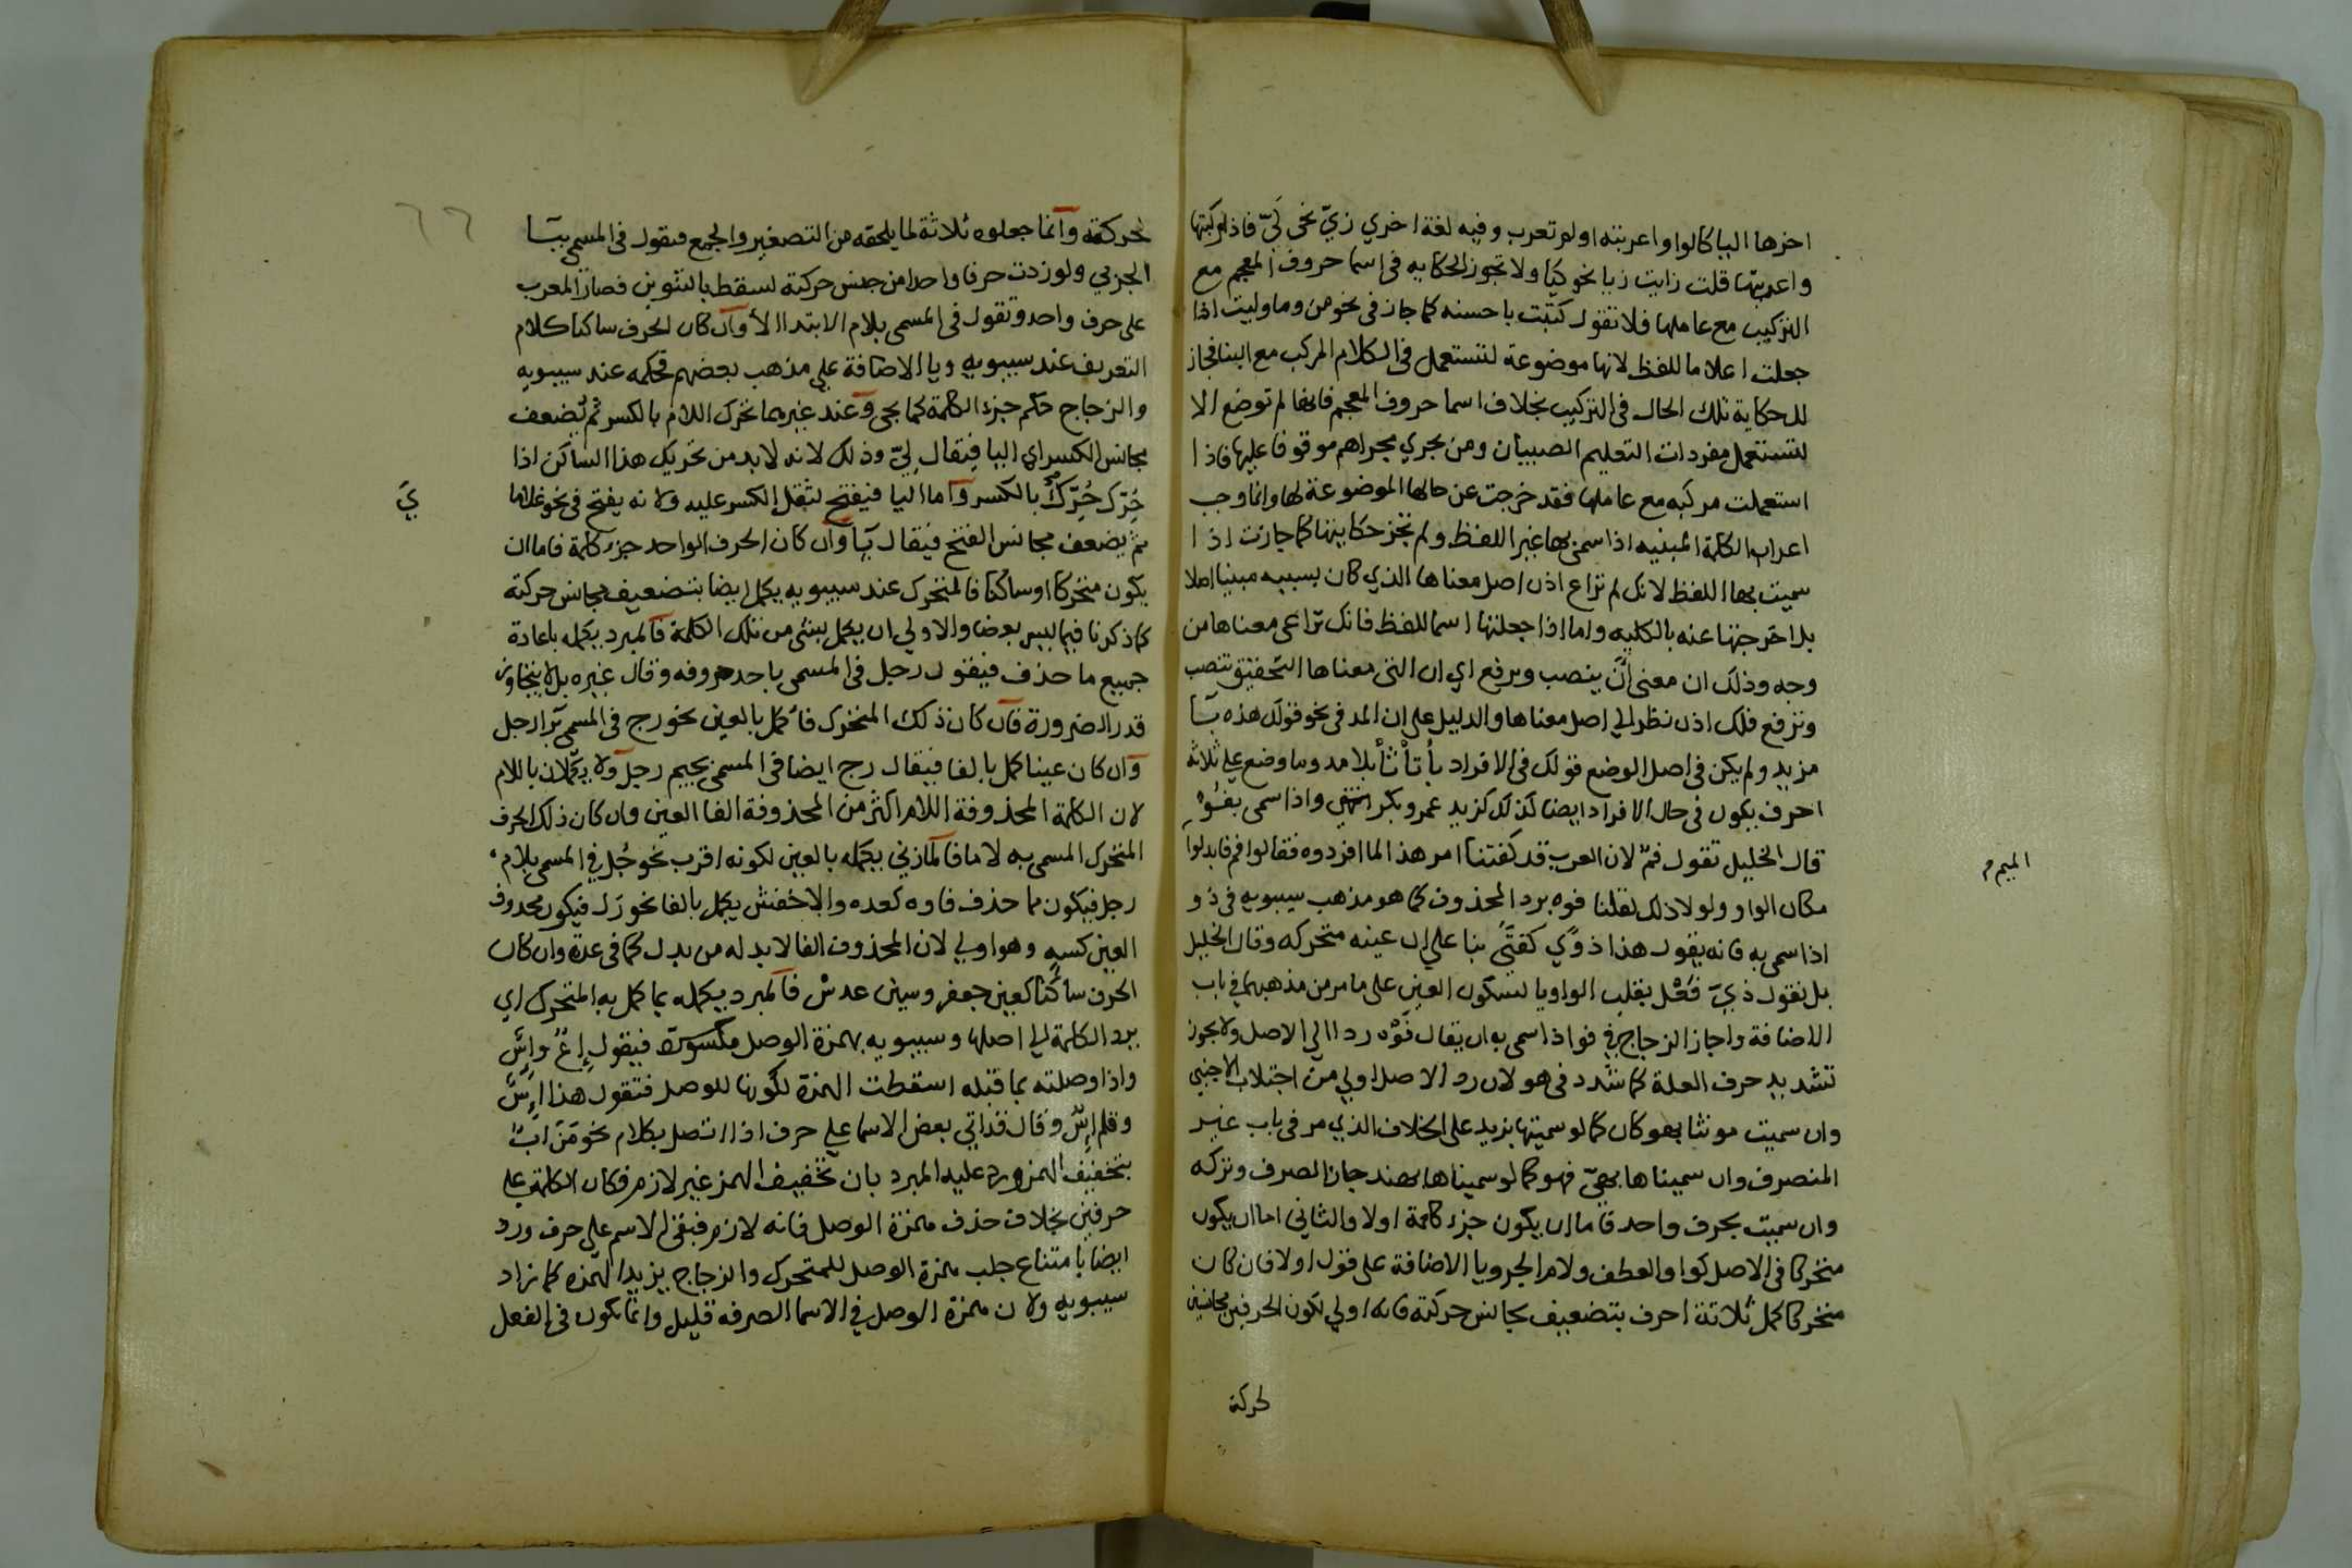 اخرها اليا كالواو اعربته او لم تعرب وفيه لغة اخري زيّ نحو كيّ فاذا ركبتها
واعربتها قلت زايت زيا نحو كيا ولا تجوز الحكايه في اسما حروف المعجم مع
التركيب مع عاملها فلا تقول كتبت با حسنه كما جاز في نحو من وما وليت اذا
جعلت اعلاما للفظ لانها موضوعة لتستعمل في الكلام المركب مع البنا فجاز
لك حكاية تلك الحال في التركيب بخلاف اسما حروف المعجم فانها لم توضع الا
لتستعمل مفردات التعليم الصبيان ومن يجري مجراهم موقوفا عليها فاذا
استعملت مركبه مع عاملها فقد خرجت عن حالها الموضوعة لها وانما وجب
اعراب الكلمة المبنيه اذا سمي بها غير اللفظ ولم تجز حكايتها كما جازت اذا
سميت بها اللفظ لانك لم تراع اذن اصل معناها الذي كان بسببه مبنيا اصلا
بل اخرجتها عنه بالكليه واما اذا جعلتها اسما للفظ فانك تراعي معناها من
وجه وذلك ان معنى انّ ينصب ويرفع اي ان التي معناها التحقيق تنصب
وترفع فلك اذن نظر الي اصل معناها والدليل على ان المد في نحو قولك هذه بآ
مزيد ولم يكن في اصل الوضع قولك في الافراد بأ تأ ثأ بلا مد وما وضع علي ثلاثة
احرف يكون في حال الافراد ايضا كذلك كزيد عمرو بكر انتهى واذا سمي بفوه
قال الخليل تقول فمٌ لان العرب قد كفتنا امر هذا لما افردوه فقالوا فم فابدلوا
الميم م
مكان الواو ولولا ذلك لقلنا فوه برد المحذوف كما هو مذهب سيبويه في ذو
اذا سمي به فانه يقول هذا ذوًي كفتًى بنا علي ان عينه متحركه وقال الخليل
بل نقول ذيّ فَعْل بقلب الواو يا لسكون العين على ما مر من مذهبهما في باب
الاضافة واجاز الزجاج في فو اذا سمى به ان يقال فَوْه ردا الي الاصل ولا يجوز
تشديد حرف العلة كما شدد في هو لان رد الاصل اولي من اجتلاب الاجنبي
وان سميت مونثا بهو كان كما لو سميتها بزيد على الخلاف الذي مر في باب غير
المنصرف وان سميناها بهيّ فهو كما لو سميناها بهند جاز الصرف وتركه
وان سميت بحرف واحد فاما ان يكون جزء كلمة اولا والثاني اما ان يكون
متحركا في الاصل كواو العطف ولام الجر ويا الاضافة على قول اولا فان كان
متحركا كمل ثلاثة احرف بتضعيف مجانس حركته فانه اولي لكون الحرفين مجانسين
لحركة
لحركته وانما جعلوه ثلاثة لما يلحقه من التصغير والجمع فيقول في المسمى ببآ
الجر بي ولو زدت حرفا واحدا من جنس حركته لسقط بالتنوين فصار المعرب
على حرف واحد وتقول في المسمى بلام الابتدا لأ وان كان الحرف ساكنا كلام
التعريف عند سيبويه ويا الاضافة علي مذهب بعضهم فحكمه عند سيبويه
والزجاج حكم جزء الكلمة كما يجي وعند غيرهما تحرك اللام بالكسر ثم يُضعف
مجانس الكسر اي اليا فيقال لِيّ وذلك لانه لابد من تحريك هذا الساكن اذا
حُرّك حُرِّك بالكسر واما اليا فيفتح لثقل الكسر عليه ولانه يفتح في نحو غلاما
يَ
ثم يضعف مجانس الفتح فيقال يآ وان كان الحرف الواحد جزء كلمة فاما ان
يكون متحركا او ساكنا فالمتحرك عند سيبويه يكمل ايضا بتضعيف مجانس حركته
كما ذكرنا فيما ليس بعضا والاولي ان يكمل بشئ من تلك الكلمة فالمبرد يكمله باعادة
جميع ما حذف فيقول رجل في المسمى باحد حروفه وقال غيره بل لا يتجاوز
قدر الضرورة فان كان ذلك المتحرك فأكمل بالعين نحو رج في المسمى برا رجل
وان كان عينا كمل بالفا فيقال رج ايضا في المسمى بجيم رجل ولا يكملان باللام
لان الكلمة المحذوفة اللام اكثر من المحذوفة الفا العين وان كان ذلك الحرف
المتحرك المسمى به لاما فالمازني يكمله بالعين لكونه اقرب نحو جُل في المسمى بلام
رجل فيكون مما حذف فاوه كعده والاخفش يكمل بالفا نحو رَل فيكون محذوف
العين كسه وهو اولي لان المحذوف الفا لابد له من بدل كما في عدة وان كان
الحرف ساكنا كعين جعفر وسين عدس فالمبرد يكمله بما كمل به المتحرك اي
برد الكلمة الي اصلها وسيبويه بهمزة الوصل مكسورة فيقول إعٌ واِسٌ
واذا وصلته بما قبله اسقطت الهمزة لكونها للوصل فتقول هذا اِسٌ
وقلم اِسٌ وقال قد اتي بعض الاسما علي حرف اذا اتصل بكلام نحو مَنَ ابٌ
بتخفيف الهمز ورد عليه المبرد بان تخفيف الهمز غير لازم فكان الكلمة علي
حرفين بخلاف حذف همزة الوصل فانه لازم فبقي الاسم على حرف ورد
ايضا بامتناع جلب همزة الوصل للمتحرك والزجاج يزيد الهمزه كما زاد
سيبويه ولان همزة الوصل في الاسما الصرفه قليل وانما يكون في الفعل